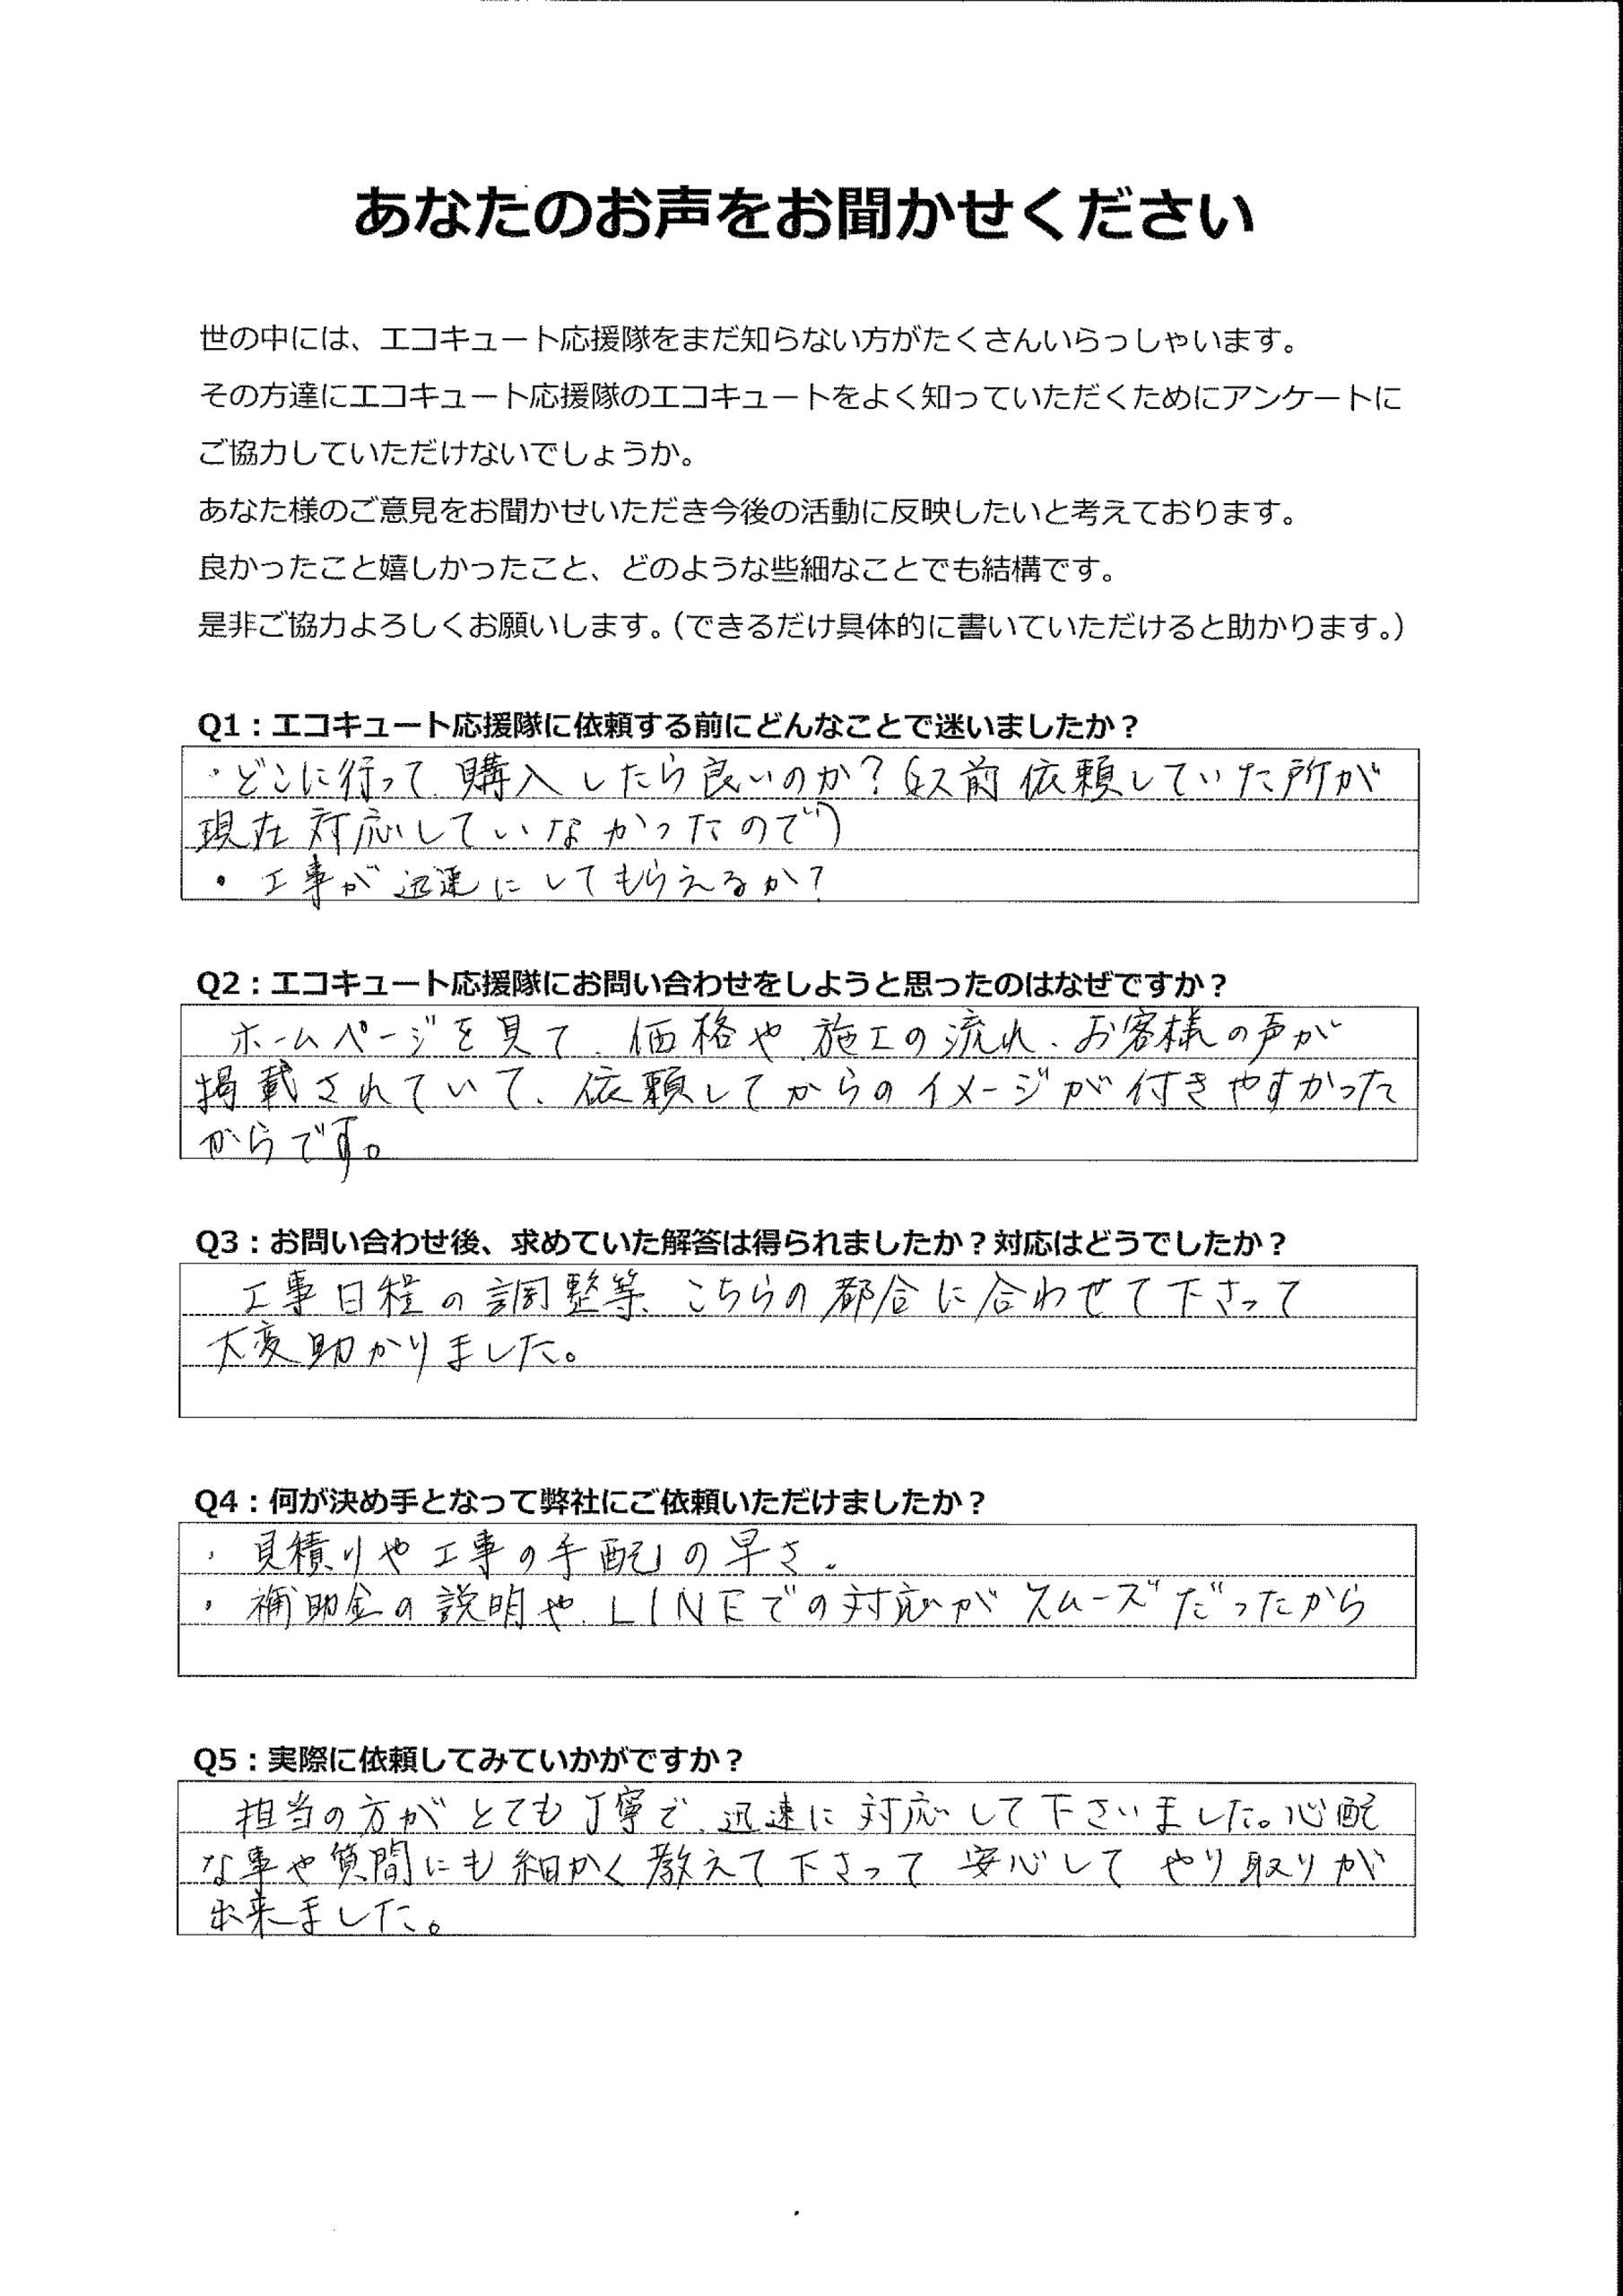 あなたのお声をお聞かせください
世の中には、エコキュート応援隊をまだ知らない方がたくさんいらっしゃいます。
その方達にエコキュート応援隊のエコキュートをよく知っていただくためにアンケートに
ご協力していただけないでしょうか。
あなた様のご意見をお聞かせいただき今後の活動に反映したいと考えております。
良かったこと嬉しかったこと、どのような些細なことでも結構です。
是非ご協力よろしくお願いします。（できるだけ具体的に書いていただけると助かります。）
Q1：エコキュート応援隊に依頼する前にどんなことで迷いましたか？
・どこに行って、購入したら良いのか？(以前依頼していた所が
現在対応していなかったので)
・工事が迅速にしてもらえるか？
Q2：エコキュート応援隊にお問い合わせをしようと思ったのはなぜですか？
ホームページを見て、価格や施工の流れ、お客様の声が
掲載されていて、依頼してからのイメージが付きやすかった
からです。
Q3：お問い合わせ後、求めていた解答は得られましたか？対応はどうでしたか？
工事日程の調整等、こちらの都合に合わせて下さって
大変助かりました。
Q4：何が決め手となって弊社にご依頼いただけましたか？
・見積りや工事の手配の早さ。
・補助金の説明や、LINEでの対応がスムーズだったから
Q5：実際に依頼してみていかがですか？
担当の方がとても丁寧で、迅速に対応して下さいました。心配
な事や質問にも細かく教えて下さって安心してやり取りが
出来ました。